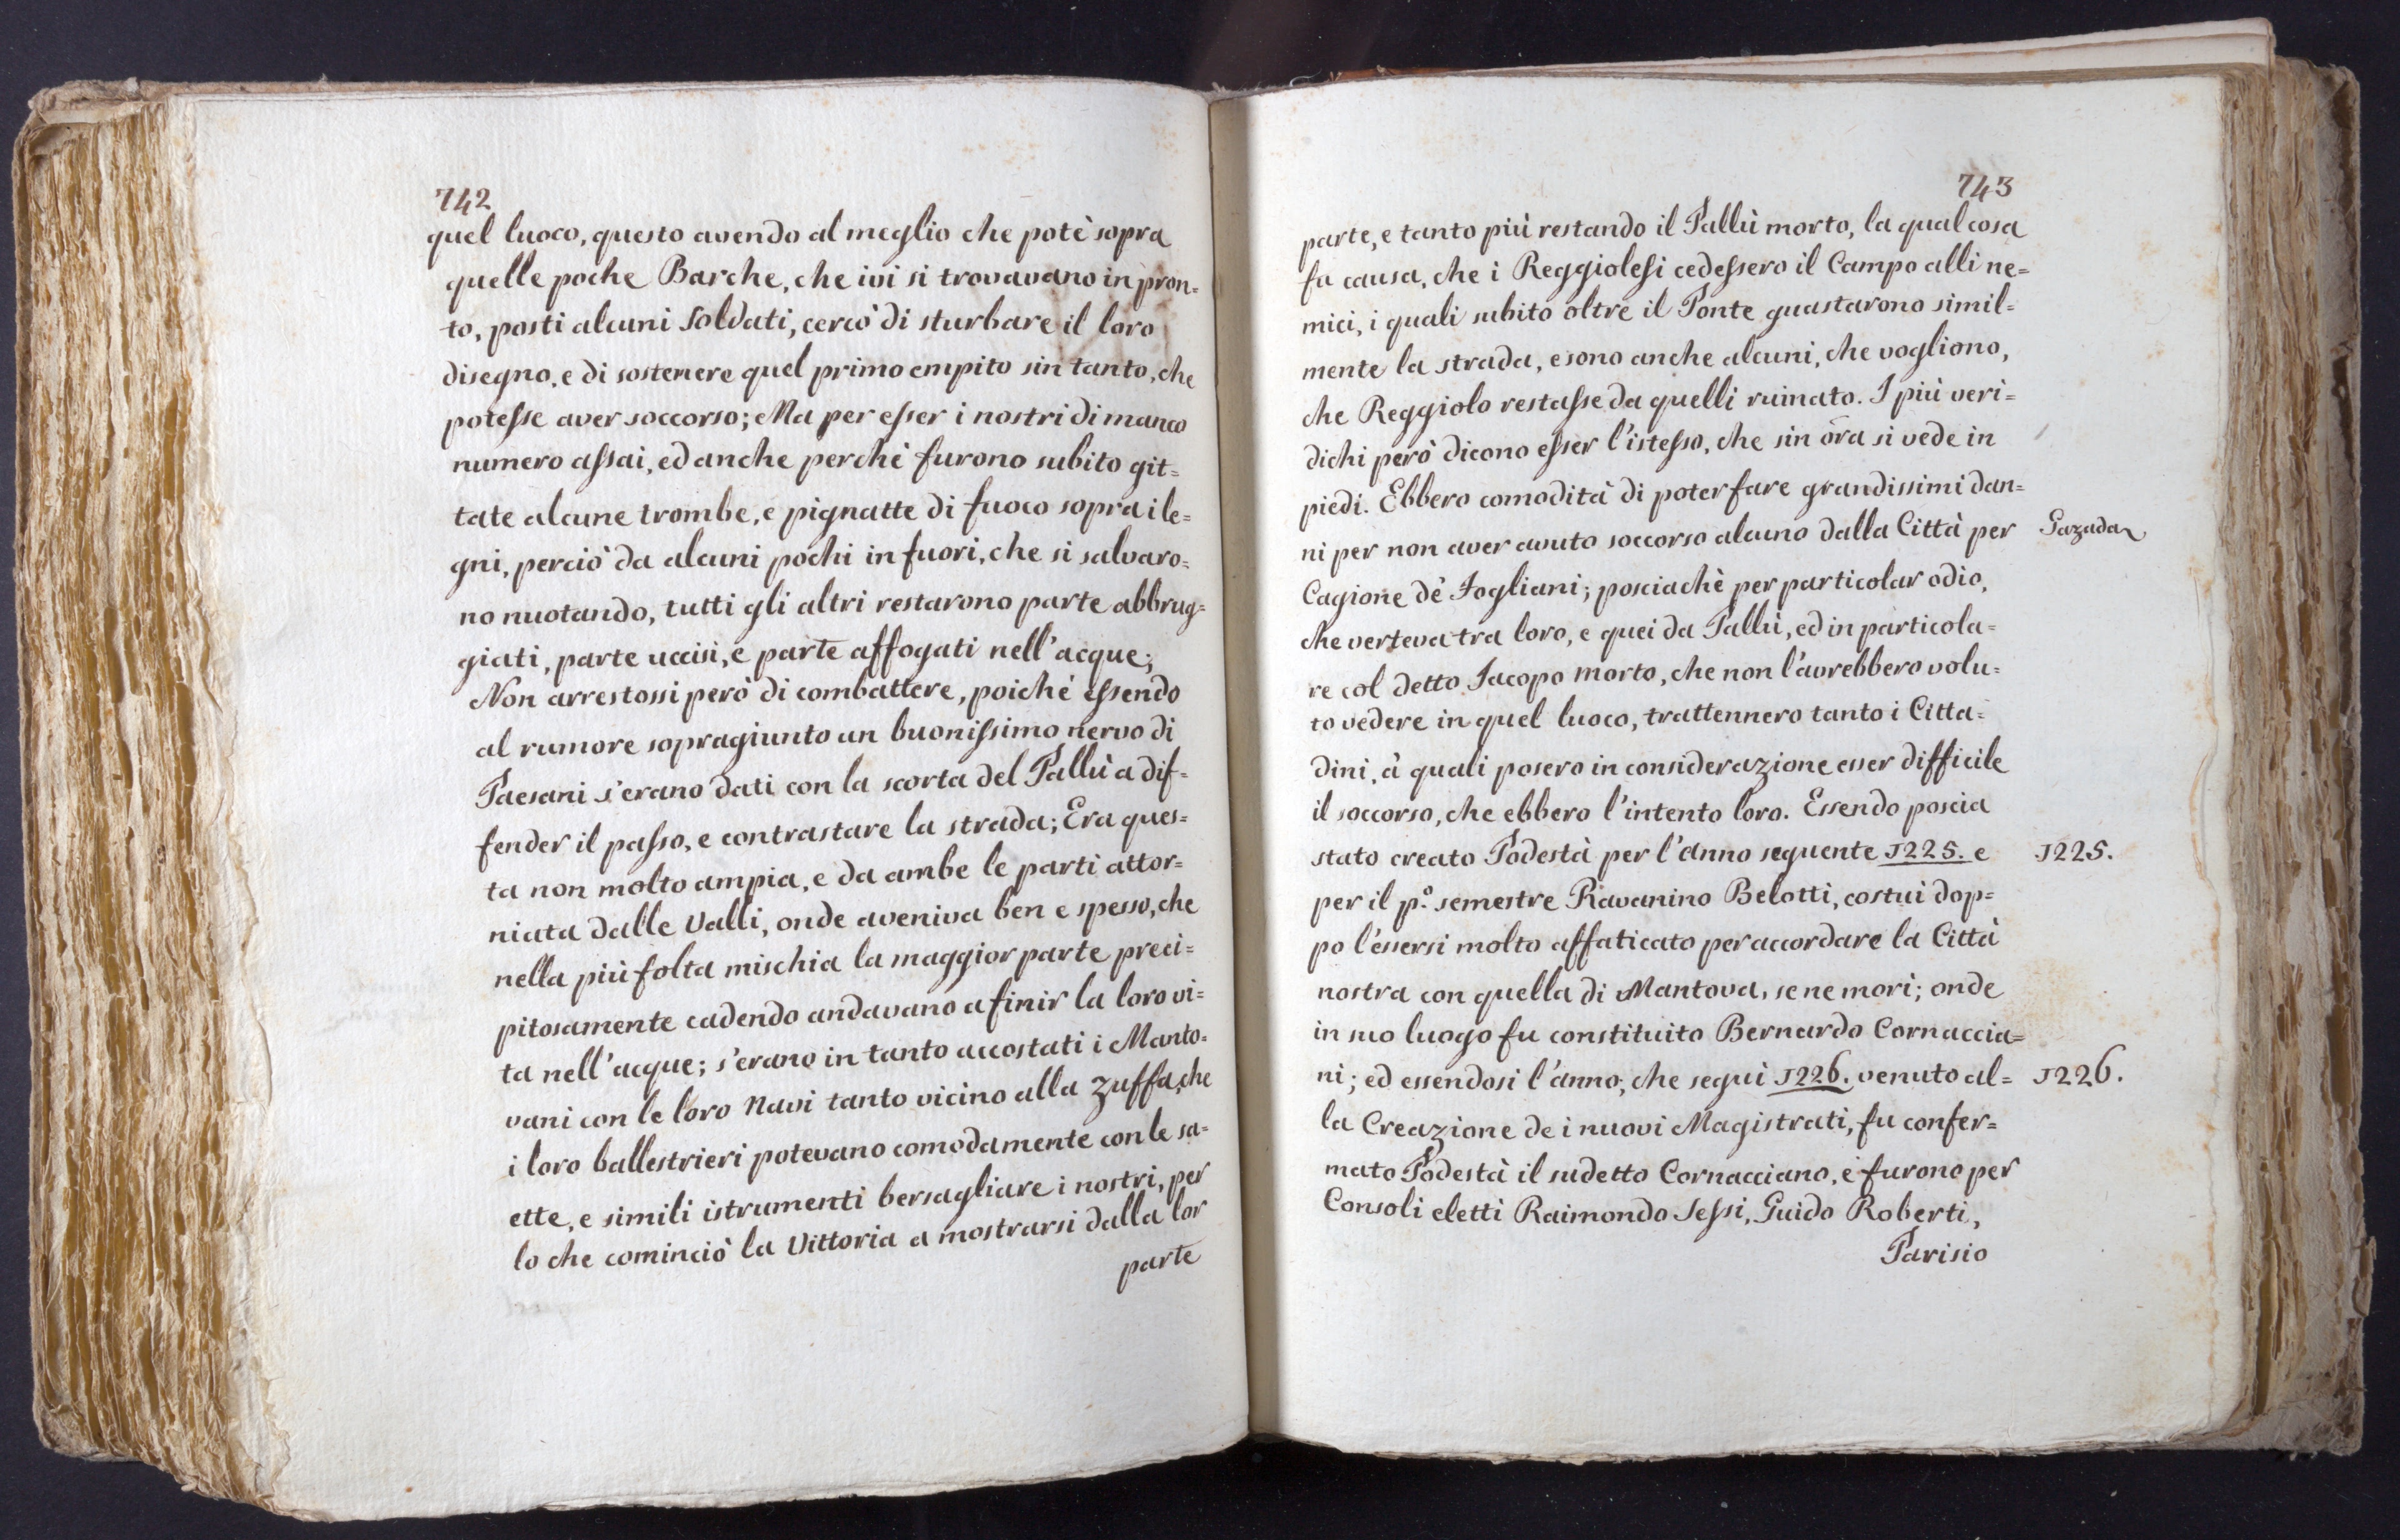 742
quel luoco, questo avendo al meglio che potè sopra
quelle poche Barche, che ivi si trovavano in pron=
to, posti alcuni Soldati, cercò di sturbare il loro
disegno, e di sostenere quel primo empito sin tanto, che
potesse aver soccorso; Ma per esser i nostri di manco
numero assai, ed anche perchè furono subito git=
tate alcune trombe, e pignatte di fuoco sopra i le=
gni, perciò da alcuni pochi in fuori, che si salvaro=
no nuotando, tutti gli altri restarono parte abbrug=
giati, parte uccisi, e parte affogati nell'acque;
Non arrestossi però di combattere, poichè essendo
al rumore sopragiunto un buonissimo nervo di
Paesani s'erano dati con la scorta del Pallù a dif=
fender il passo, e contrastare la strada; Era ques=
ta non molto ampia, e da ambe le parti attor=
niata dalle Valli, onde aveniva ben e spesso, che
nella più folta mischia la maggior parte preci=
pitosamente cadendo andavano a finir la loro vi=
ta nell'acque; s'erano in tanto accostati i Manto=
vani con le loro Navi tanto vicino alla Zuffa, che
i loro ballestrieri potevano comodamente con le sa=
ette, e simili istrumenti bersagliare i nostri, per
lo che cominciò la Vittoria a mostrarsi dalla lor
parte
743
parte, e tanto più restando il Pallù morto, la qual cosa
fu causa, che i Reggiolesi cedessero il Campo alli ne=
mici, i quali subito oltre il Ponte guastarono simil=
mente la strada, e sono anche alcuni, che vogliono,
che Reggiolo restasse da quelli ruinato. I più veri=
dichi però dicono esser l'istesso, che sin ora si vede in
piedi. Ebbero comodità di poter fare grandissimi dan=
ni per non aver avuto soccorso alcuno dalla Città per
Gazada
Cagione dè Fogliani; posciachè per particolar odio,
che verteva tra loro, e quei da Pallù, ed in particola=
re col detto Iacopo morto, che non l'avrebbero volu=
to vedere in quel luoco, trattennero tanto i Citta=
dini, à quali posero in considerazione esser difficile
il soccorso, che ebbero l'intento loro. Essendo poscia
stato creato Podestà per l'anno seguente 1225. e
1225.
per il p.º semestre Ravanino Belotti, costui dop=
po l'essersi molto affaticato per accordare la Città
nostra con quella di Mantova, se ne morì; onde
in suo luogo fu constituito Bernardo Cornaccia=
ni; ed essendosi l'anno, che seguì 1226. venuto al=
1226.
la Creazione de i nuovi Magistrati, fu confer=
mato Podestà il sudetto Cornacciano, e furono per
Consoli eletti Raimondo Sessi, Guido Roberti,
Parisio